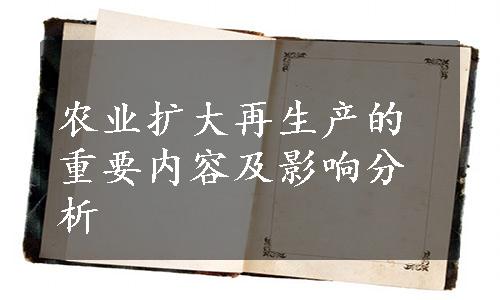 农业扩大再生产的
重要内容及影响分
析